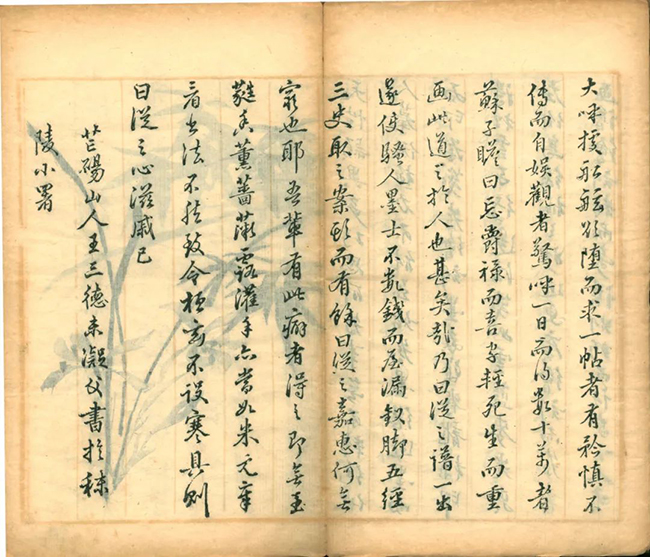 大呼據舩舷欲墮而求一帖者有矜慎不
傳而自娛觀者驚呼一日而得數十萬者
蘇子瞻曰忘爵祿而喜字輕死生而重
画此道之於人也甚矣哉乃曰從之譜一出
遂使騷人墨士不費錢而屋漏釵脚五經
三史取之案頭而有餘曰從之嘉惠何無
窮也耶吾輩有此癖者得之即無玉
蕤香薰薔薇露灌手亦當如米元章
看書法不然致令桓玄不設寒具則
曰從之心滋戚已
芒碭山人王三德凝父書於秣
陵小署